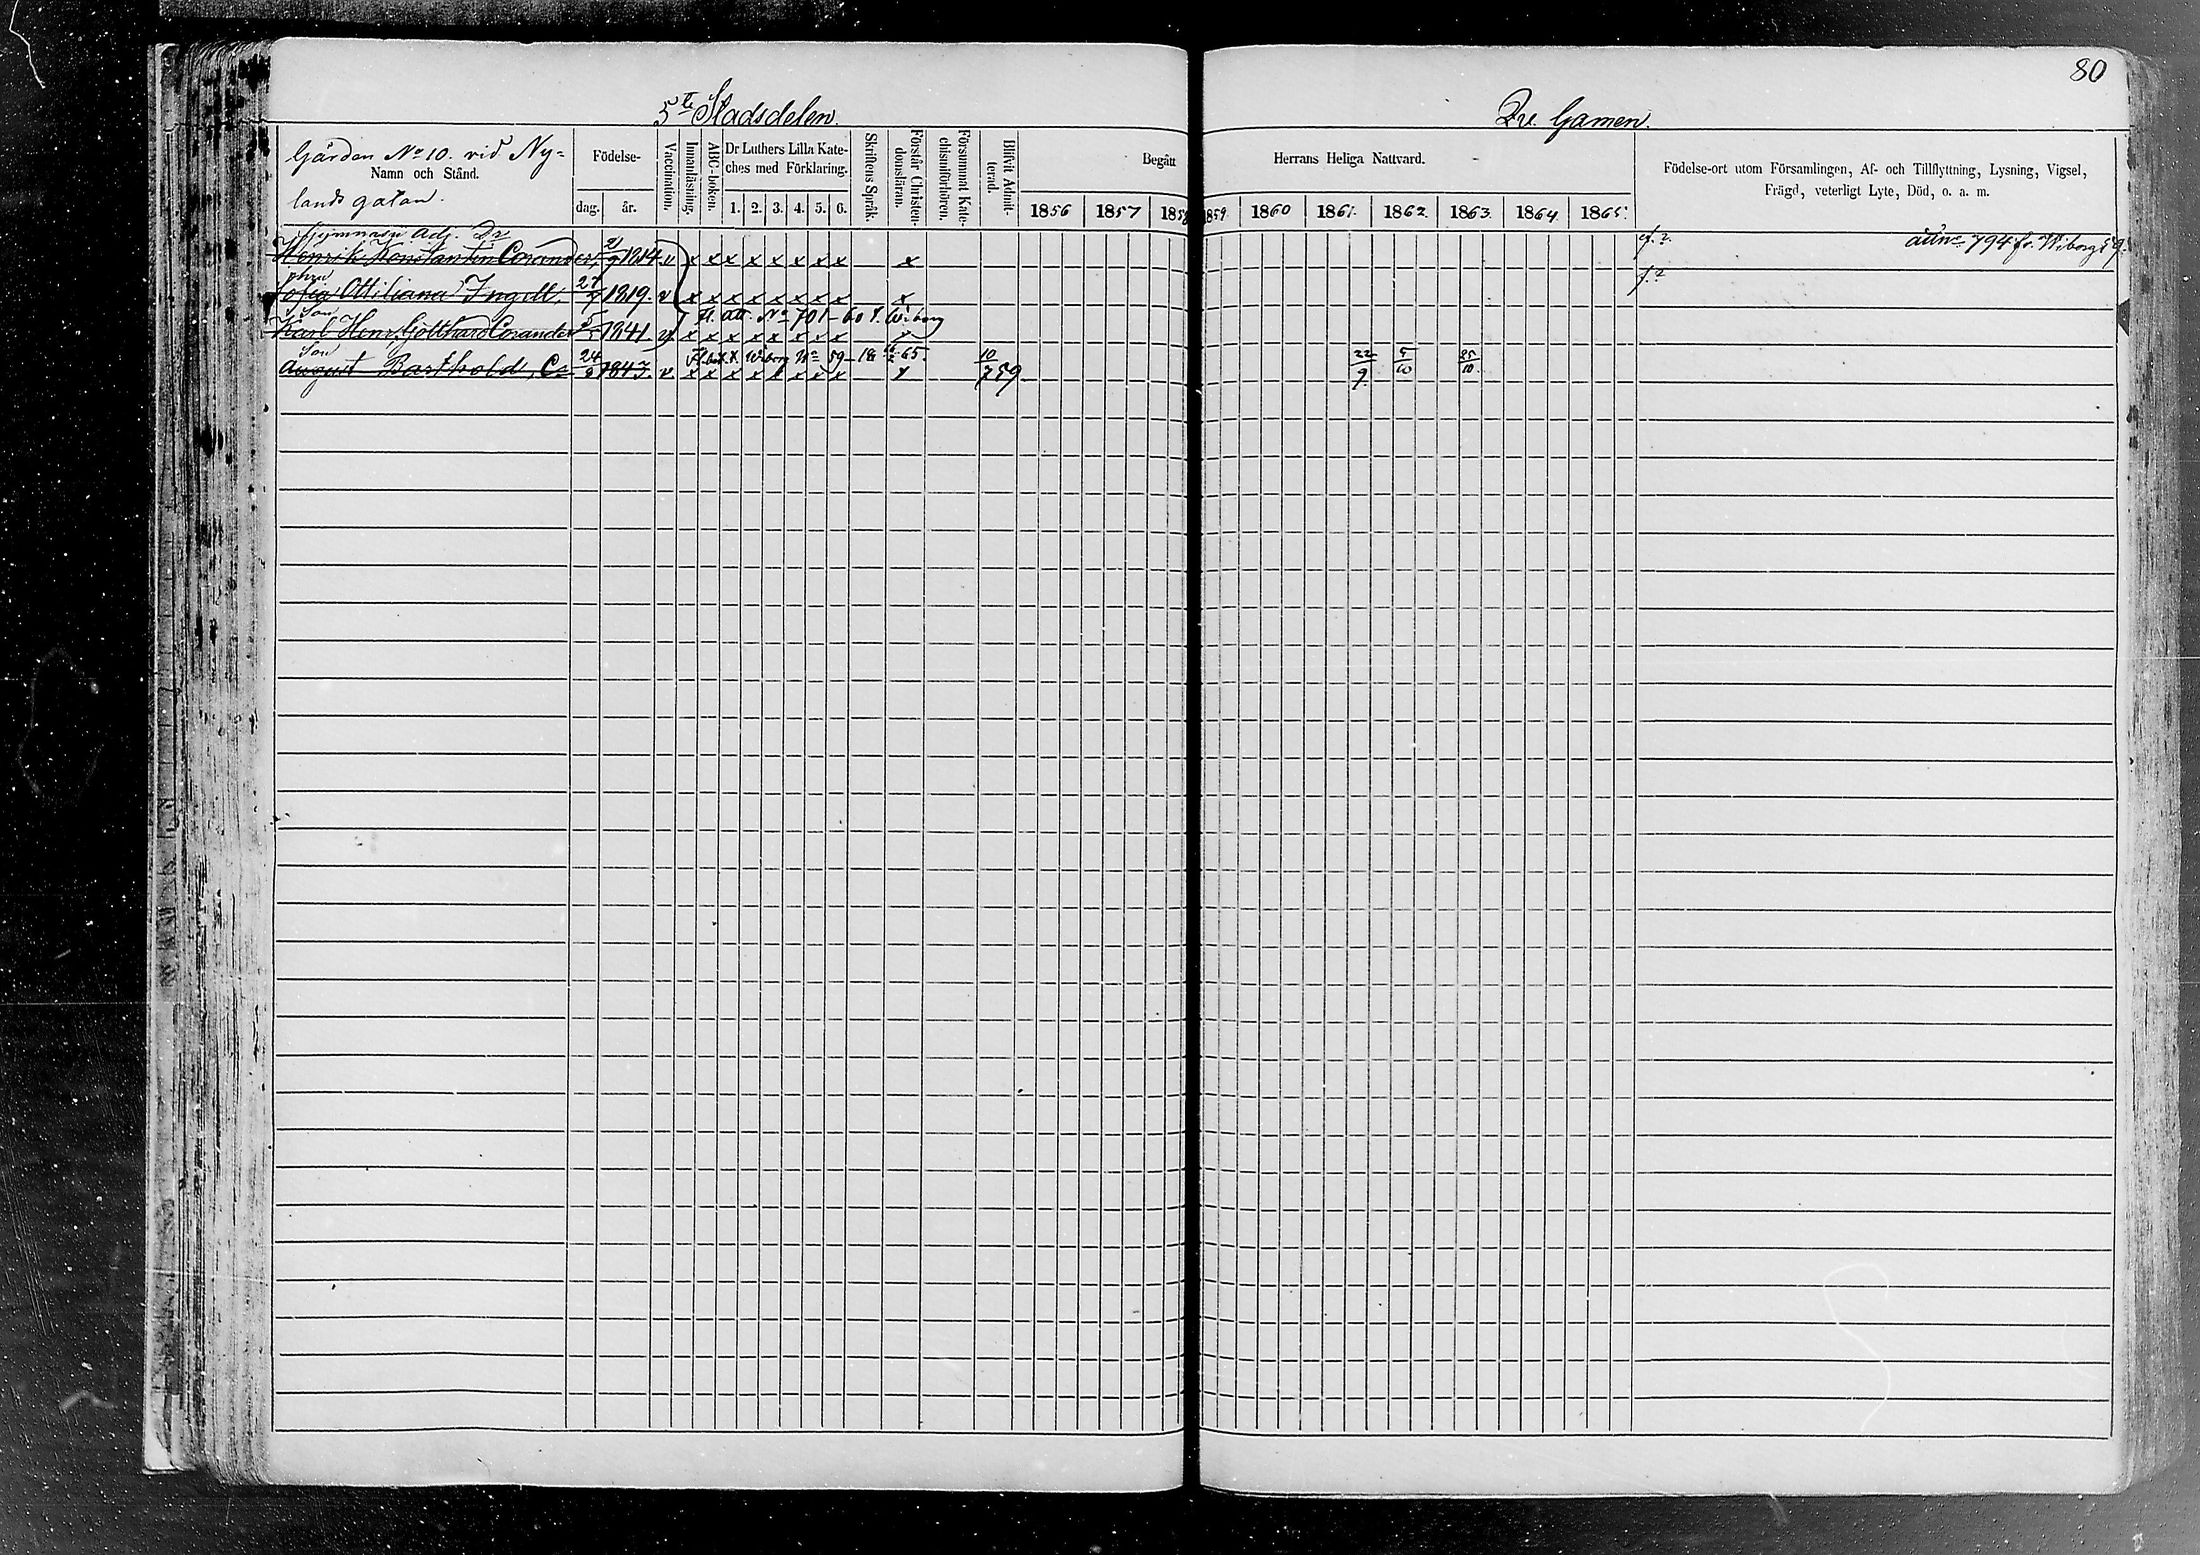 80
5te Stadsdelen.
Qv. Gamen.
Gården No 10. vid Ny=
Namn och Stånd.
lands gatan.
Födelse-
dag. år.
Vaccination.
Innanläsning.
ABC-boken.
Dr Luthers Lilla Kate-
ches med Förklaring.
1. 2. 3. 4. 5. 6.
Skriftens Språk.
Förstår Christen-
domsläran.
Försummat Kate-
chismiförhören.
Blifvit Admit-
terad.
Begått
Herrans Heliga Nattvard.
1856 1857 1858 1859. 1860 1861. 1862. 1863. 1864. 1865.
Födelse-ort utom Församlingen, Af- och Tillflyttning, Lysning, Vigsel,
Frägd, veterligt Lyte, Död, o. a. m.
Gymnasii Adj. Dr
Henrik Konstantin Corander, 2/9 1814. v x x x x x x x x x
794 fr. Wiborg 59.
Sofia Ottiliana Ingell. 27/7 1819. v x x x x x x x x x
fl. att. No 701 - 60 t. Wiborg
Son
Karl Henr. Gotthard Corander 1841. v x x x x x x x x
Son
Wiborg No 59 - 18 65.
August Barthold, Cr 24/9 1843. v x x x x x x x x x 10/7 59 22/9 5/10 25/10